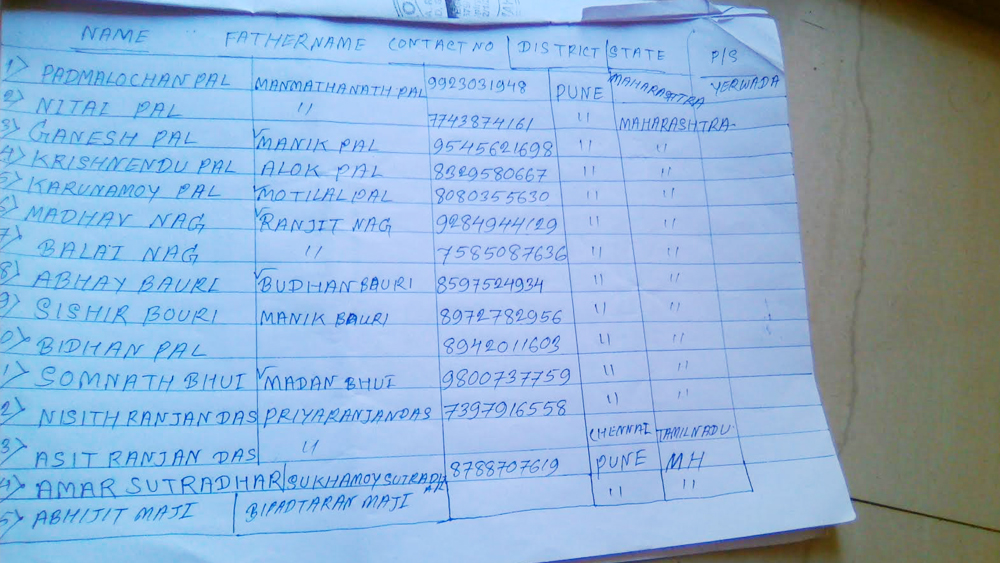 NAME FATHERNAME CONTACT NO DISTRICT STATE P/S
1) PADMALOCHAN PAL MANMATHANATH PAL 9923031948 PUNE MAHARASHTRA YERWADA
2) NITAI PAL " 7743874161 " MAHARASHTRA
3) GANESH PAL MANIK PAL 9545621698 " "
4) KRISHNENDU PAL ALOK PAL 8329580667 " "
5) KARUNAMOY PAL MOTILAL PAL 8080355630 " "
6) MADHAV NAG RANJIT NAG 9284944129 " "
7) BALAI NAG " 7585087636 " "
8) ABHAY BAURI BUDHAN BAURI 8597524934 " "
9) SISHIR BOURI MANIK BAURI 8972782956 " "
0) BIDHAN PAL 8942011603 " "
1) SOMNATH BHUI MADAN BHUI 9800737759 " "
2) NISITH RANJAN DAS PRIYARANJAN DAS 7397916558 " "
3) ASIT RANJAN DAS " CHENNAI TAMILNADU
4) AMAR SUTRADHAR SUKHAMOY SUTRADHAR 8788707619 PUNE MH
5) ABHIJIT MAJI BIPADTARAN MAJI " "